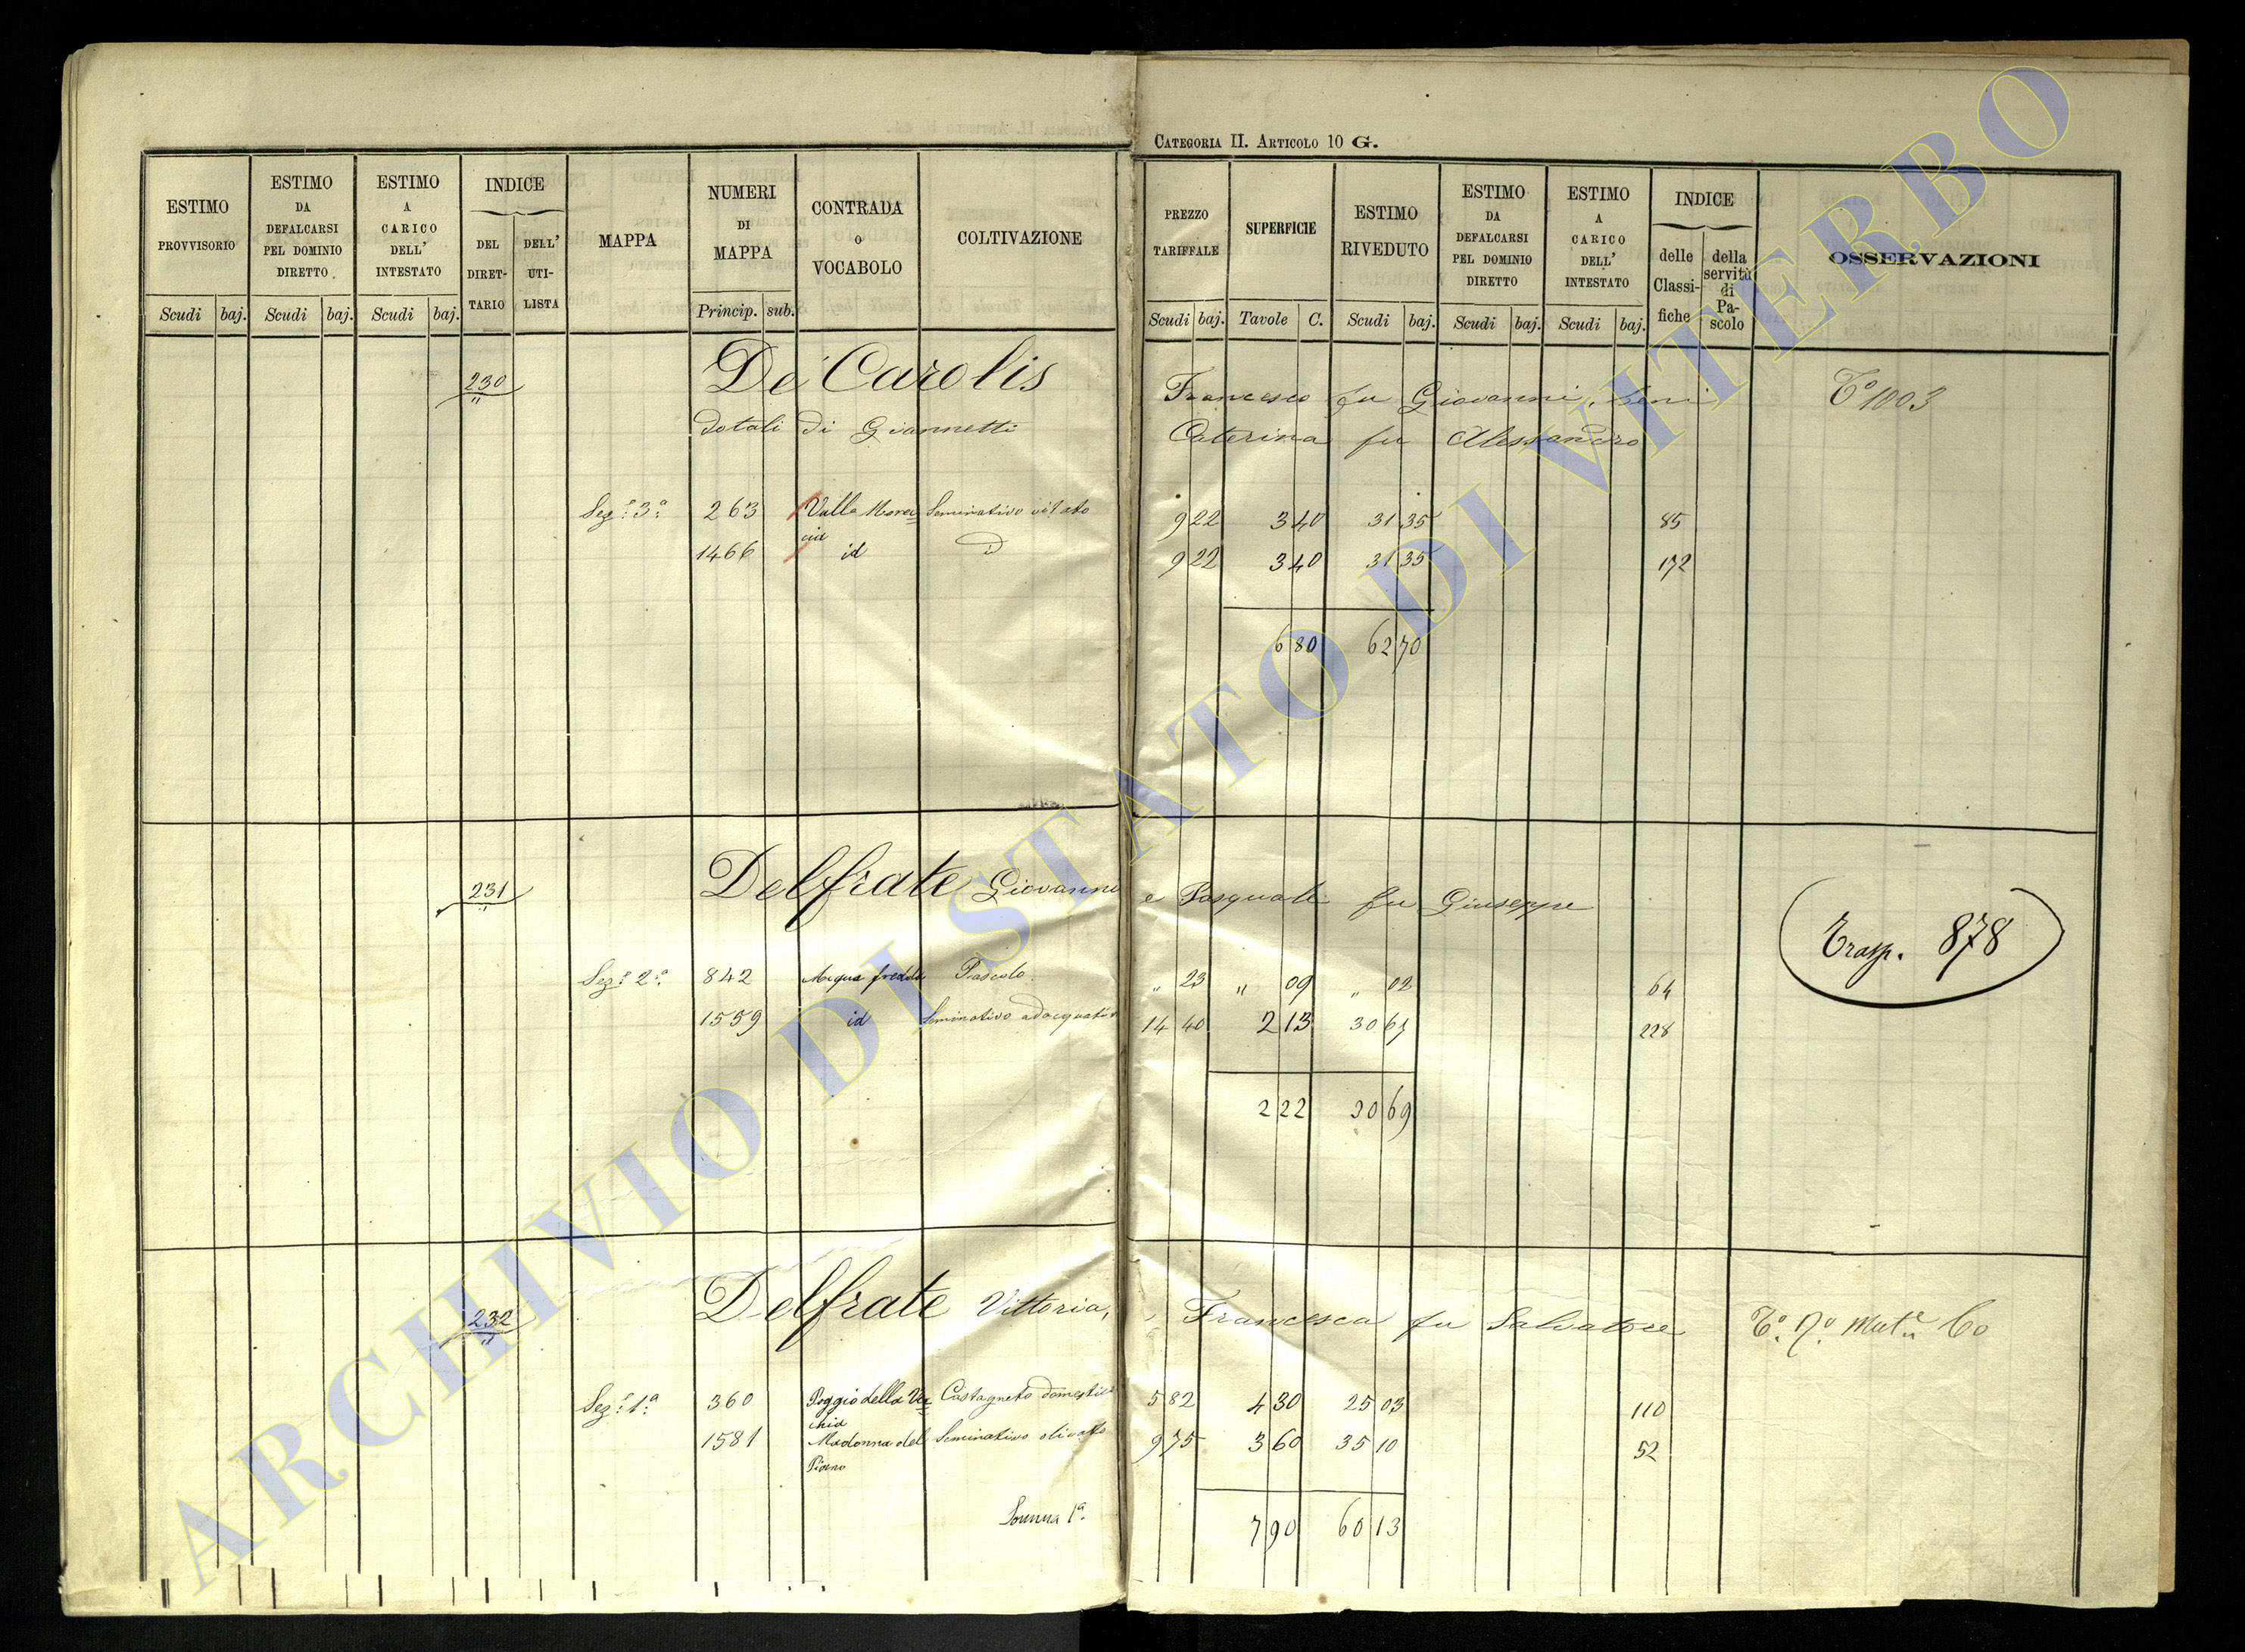 CATEGORIA II. ARTICOLO 10 G.
ESTIMO PROVVISORIO Scudi baj.
ESTIMO DA DEFALCARSI PEL DOMINIO DIRETTO Scudi baj.
ESTIMO A CARICO DELL' INTESTATO Scudi baj.
INDICE DEL DIRETTARIO DELL' UTILISTA
MAPPA
NUMERI DI MAPPA Princip. sub.
CONTRADA o VOCABOLO
COLTIVAZIONE
PREZZO TARIFFALE Scudi baj.
SUPERFICIE Tavole C.
ESTIMO RIVEDUTO Scudi baj.
ESTIMO DA DEFALCARSI PEL DOMINIO DIRETTO Scudi baj.
ESTIMO A CARICO DELL' INTESTATO Scudi baj.
INDICE delle Classifiche della servitù di Pascolo
OSSERVAZIONI
230 De Carolis Francesco fu Giovanni, beni To 1003
dotali di Giannetti Caterina fu Alessandro
Sez.e 3a 263 Valle Seminativo vitato 9 22 3 40 31 35 85
1466 id id 9 22 3 40 31 35 172
6 80 62 70
231 Delfrate Giovanni e Pasquale fu Giuseppe
Trasp. 878
Sez.e 2a 842 Acqua fredda Pascolo " 23 " 09 " 02 64
1559 id Seminativo adacquativo 14 40 2 13 30 67 228
2 22 30 69
232 Delfrate Vittoria, Francesca fu Salvatore
Sez.e 1a 360 Poggio della Vec= Castagneto domestico 5 82 4 30 25 03 110
chia
1581 Madonna del Seminativo olivato 9 75 3 60 35 10 52
Piano
Somma 1a 7 90 60 13
ARCHIVIO DI STATO DI VITERBO